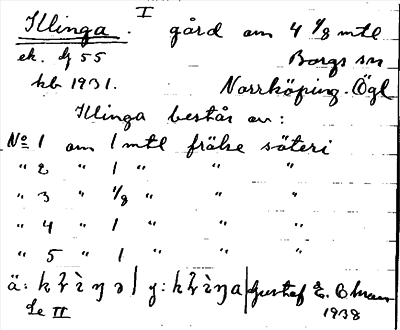 Illinga. I gård om 4 1/8 mtl
ek. bl 55 Borgs sn
kb 1931. Norrköping. Ögl
Illinga består av:
No 1 om 1 mtl frälse säteri
" 2 " 1 " " "
" 3 " 1/8 " " "
" 4 " 1 " " "
" 5 " 1 " " "
ä: | y: | Gustaf E.
Se II 1938